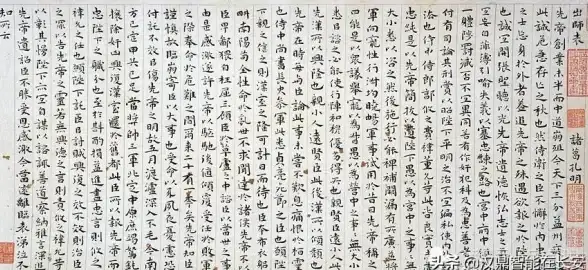 出師表 諸葛孔明
先帝創業未半而中道崩殂今天下三分益州疲弊此
誠危急存亡之秋也然侍衛之臣不懈於內忠志之士
忘身於外者蓋追先帝之殊遇欲報之於陛下
也誠宜開張聖聽以光先帝遺德恢弘志士之氣不
宜妄自菲薄引喻失義以塞忠諫之路也宮中府中俱為
一體陟罰臧否不宜異同若有作奸犯科及為忠善者宜
付有司論其刑賞以昭陛下平明之治不宜偏私使內外異
法也侍中侍郎郭攸之費禕董允等此皆良實志慮
忠純是以先帝簡拔以遺陛下愚以為宮中之事事無
大小悉以咨之然後施行必能裨補闕漏有所廣益將
軍向寵性行淑均曉暢軍事試用於昔日先帝稱之
曰能是以眾議舉寵以為督愚以為營中之事事無大小
悉以咨之必能使行陣和穆優劣得所也親賢臣遠小人此
先漢所以興隆也親小人遠賢臣此後漢所以傾頹也
先帝在時每與臣論此事未嘗不歎息痛恨於桓靈
也侍中尚書長史參軍此悉貞亮死節之臣也願陛
下親之信之則漢室之隆可計日而待也臣本布衣躬
耕南陽苟全性命於亂世不求聞達於諸侯先帝不以
臣卑鄙猥自枉屈三顧臣於草廬之中諮臣以當世之事
由是感激遂許先帝以驅馳後值傾覆受任於敗軍
之際奉命於危難之間爾來二十有一年矣先帝知臣
謹慎故臨崩寄臣以大事也受命以來夙夜憂慮恐
付託不效以傷先帝之明故五月渡瀘深入不毛今南
方已定甲兵已足當獎帥三軍北定中原庶竭駑鈍
攘除奸凶興復漢室還於舊都此臣所以報先帝而
忠陛下之職分也至於斟酌損益進盡忠言則攸之
禕允之任也願陛下託臣以討賊興復之效不效則治臣
之罪以告先帝之靈若無興德之言則責攸之禕允等
以彰其慢陛下亦宜自謀以諮諏善道察納雅言深追
先帝遺詔臣不勝受恩感激今當遠離臨表涕泣不
知所云